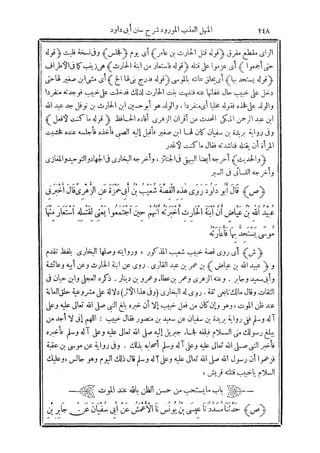 ٢٤٨ المنهل العذب المورود شرح سنن أبى داود
الزاى مفتاح مفرق (قوله قتل الحارث بن عامر) أى يوم (قوله
حتى أجمعوا) أى عزموا على قتله (قوله فاستعار من ابنة الحارث) هى زينب كما فى الأطراف
(قوله يستحد بها) أى يحلق عانته بالموسى (قوله فدرج بنى لها الخ) أى مشى ابن صغير لها حتى
دخل على خبيب حال غفلتها عنه فانتهت بنت الحارث لذلك فدخلت على خبيب فوجدته منفردا
والولد على فخذه فقوله مخليا أى منفردا، والولد هو أبو حسين ابن الحارث بن نوفل جد عبد الله
ابن عبد الرحمن المكى المحدث من أقران الزهرى أفاده الحافظ (قوله ما كنت لأفعل)
وفى رواية بريدة بن سفيان كان لها ابن صغير فأقبل إليه الصبى فأخذه فأجلسه عنده فخشيت
المرأة أن يقتله فناشدته فقال ما كنت لأغدر
(والحديث) أخرجه أيضا البيهقى فى الجنائز، وأخرجه البخارى فى الجهاد والتوحيد والمغازى
وأخرجه النسائى فى السير
(ص) قَالَ أَبُو دَاوُدَ رَوَى هٰذِهِ الْقِصَّةَ شُعَيْبُ بْنُ أَبِى حَمْزَةَ عَنِ الزُّهْرِىِّ قَالَ أَخْبَرَنِى
عُبَيْدُ اللهِ بْنُ عِيَاضٍ أَنَّ ابْنَةَ الْحَارِثِ أَخْبَرَتْهُ أَنَّهُمْ حِينَ اجْتَمَعُوا يَعْنِى لِقَتْلِهِ اسْتَعَارَ مِنْهَا
مُوسَى يَسْتَحِدُّ بِهَا فَأَعَارَتْهُ
(ش) أى روى قصة خبيب شعيب المذكور، وروايته وصلها البخارى بلفظ تقدم
و (عبيد الله بن عياض) بن عمر بن عبد القارى. روى عن ابنة الحارث وعن أبيه وعائشة
وأبى سعيد وجابر. وعنه الزهرى وعمر بن عطاء وعمرو بن دينار. ذكره العجلى وابن حبان فى
الثقات. وقال مالك تابعى ثقة. روى له البخارى (وفى هذا الأثر) دلالة على مشروعية حلق العانة
عند ظن الموت، وهو وإن كان من فعل خبيب إلا أن خبره بلغ النبى صلى الله تعالى عليه وعلى
آله وسلم ففى رواية بريدة بن سفيان عن سعيد بن منصور فقال خبيب: اللهم إنى لا أجد من
يبلغ رسولك منى السلام فبلغه فجاء جبريل إليه صلى الله تعالى عليه وعلى آله وسلم فأخبره
فأخبر النبى صلى الله تعالى عليه وعلى آله وسلم أصحابه بذلك. وفى رواية عن موسى بن عقبة
فزعموا أن رسول الله صلى الله تعالى عليه وعلى آله وسلم قال ذلك اليوم وهو جالس، وعليك
السلام يا خبيب قتلته قريش،
باب ما يستحب من حسن الظن بالله عند الموت
(ص) حَدَّثَنَا مُسَدَّدٌ نَا عِيسَى بْنُ يُونُسَ نَا الْأَعْمَشُ عَنْ أَبِى سُفْيَانَ عَنْ جَابِرِ بْنِ